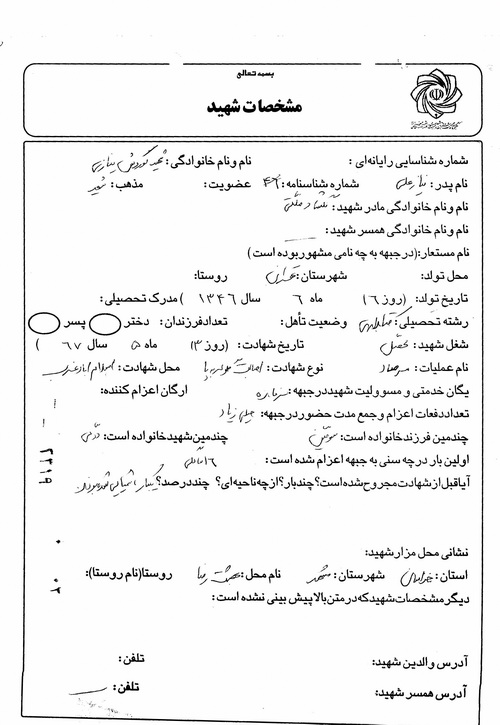 بسمه تعالی
مشخصات شهید
شماره شناسایی رایانه‌ای :
نام و نام خانوادگی: شهید
نام پدر:
شماره شناسنامه:
عضویت:
مذهب: شیعه
نام و نام خانوادگی مادر شهید:
نام و نام خانوادگی همسر شهید:
نام مستعار: (در جبهه به چه نامی مشهور بوده است)
محل تولد:
شهرستان: تهران
روستا:
تاریخ تولد: (روز ۱۶) ماه ۶ سال ۱۳۴۶ )
مدرک تحصیلی:
رشته تحصیلی:
وضعیت تأهل:
تعداد فرزندان: دختر پسر
شغل شهید: محصل
تاریخ شهادت: (روز ۳) ماه ۵ سال ۶۷ )
نام عملیات: مرصاد
نوع شهادت: اصابت
محل شهادت: اسلام آباد غرب
یگان خدمتی و مسوولیت شهید درجبهه: سرباز
ارگان اعزام کننده:
تعداد دفعات اعزام و جمع مدت حضور درجبهه: خیلی زیاد
چندمین فرزند خانواده است: سومین
چندمین شهید خانواده است:
اولین بار درچه سنی به جبهه اعزام شده است: ۱۶ سالگی
آیا قبل از شهادت مجروح شده است؟ چند بار؟ از چه ناحیه‌ای؟ چند درصد؟ یکبار شیمیایی شده بودند
۲۳۱۹
نشانی محل مزار شهید:
استان: خراسان
شهرستان: مشهد
نام محل: بهشت رضا
روستا (نام روستا):
دیگر مشخصات شهید که در متن بالا پیش بینی نشده است :
آدرس والدین شهید:
تلفن:
آدرس همسر شهید:
تلفن: